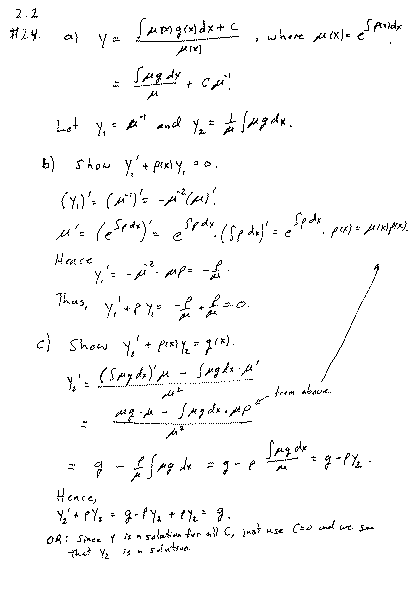 2.2
#24. a) y = (∫μ(x)g(x)dx + C) / μ(x) , where μ(x) = e^∫p(x)dx
= ∫μg dx / μ + Cμ⁻¹.
Let y₁ = μ⁻¹ and y₂ = 1/μ ∫μg dx.
b) Show y₁' + p(x)y₁ = 0.
(y₁)' = (μ⁻¹)' = -μ⁻²(μ)'.
μ' = (e^∫pdx)' = e^∫pdx · (∫p dx)' = e^∫pdx · p(x) = μ(x)p(x).
Hence
y₁' = -μ⁻² · μp = -p/μ.
Thus, y₁' + p y₁ = -p/μ + p/μ = 0.
c) Show y₂' + p(x)y₂ = g(x).
y₂' = ((∫μg dx)' μ - ∫μg dx · μ') / μ²
= (μg · μ - ∫μg dx · μp) / μ² from above.
= g - p/μ ∫μg dx = g - p ∫μg dx / μ = g - py₂.
Hence,
y₂' + py₂ = g - py₂ + py₂ = g.
OR: Since y is a solution for all C, just use C=0 and we see
that y₂ is a solution.